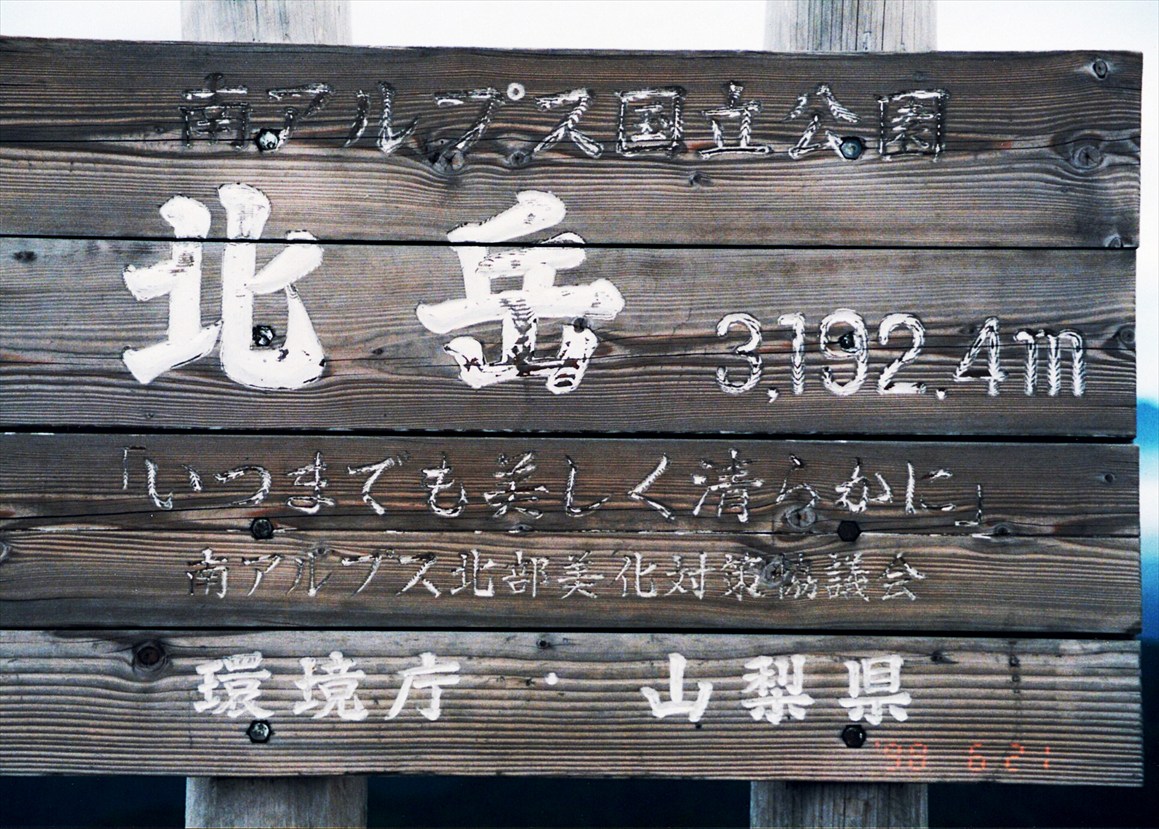 南アルプス国立公園
北岳 3,192.4m
「いつまでも美しく清らかに」
南アルプス北部美化対策協議会
環境庁・山梨県
'98 6 21